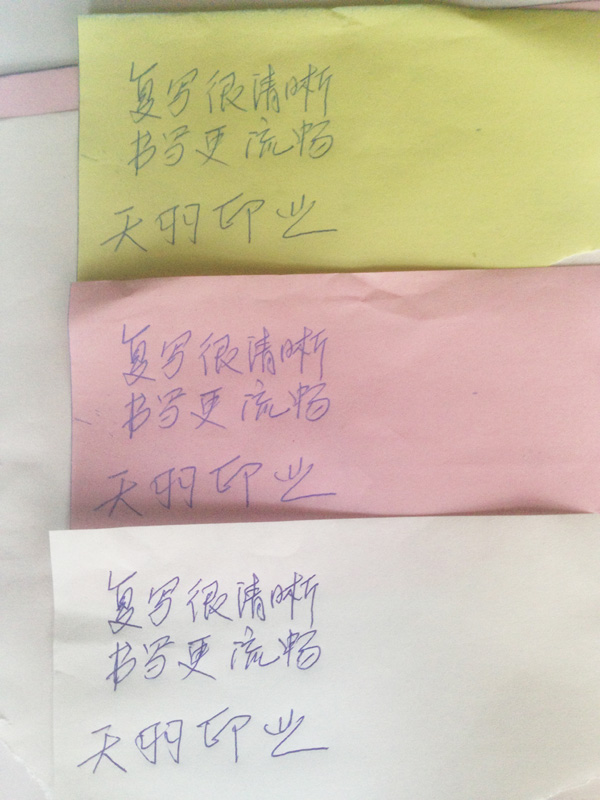 复写很清晰
书写更流畅
天羽印业
复写很清晰
书写更流畅
天羽印业
复写很清晰
书写更流畅
天羽印业